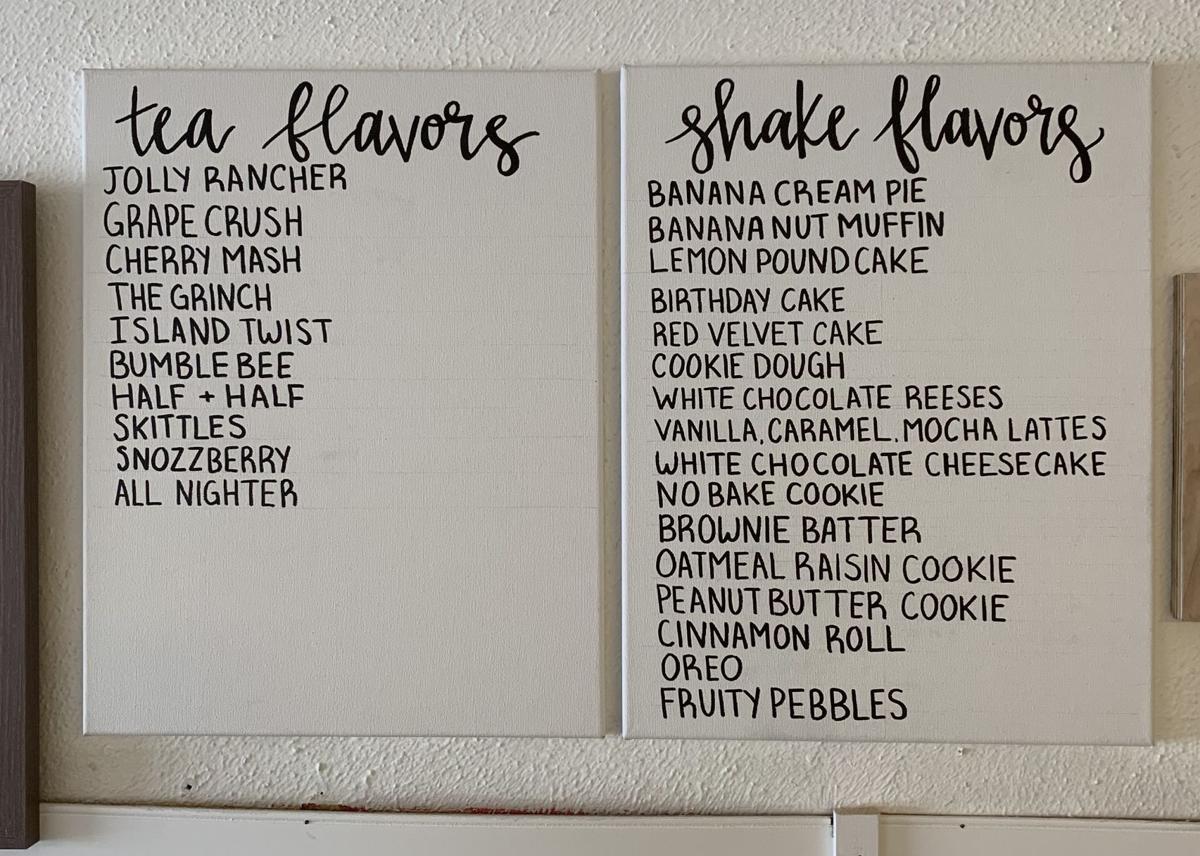 tea flavors
JOLLY RANCHER
GRAPE CRUSH
CHERRY MASH
THE GRINCH
ISLAND TWIST
BUMBLE BEE
HALF + HALF
SKITTLES
SNOZZBERRY
ALL NIGHTER
shake flavors
BANANA CREAM PIE
BANANA NUT MUFFIN
LEMON POUND CAKE
BIRTHDAY CAKE
RED VELVET CAKE
COOKIE DOUGH
WHITE CHOCOLATE REESES
VANILLA, CARAMEL, MOCHA LATTES
WHITE CHOCOLATE CHEESECAKE
NO BAKE COOKIE
BROWNIE BATTER
OATMEAL RAISIN COOKIE
PEANUT BUTTER COOKIE
CINNAMON ROLL
OREO
FRUITY PEBBLES